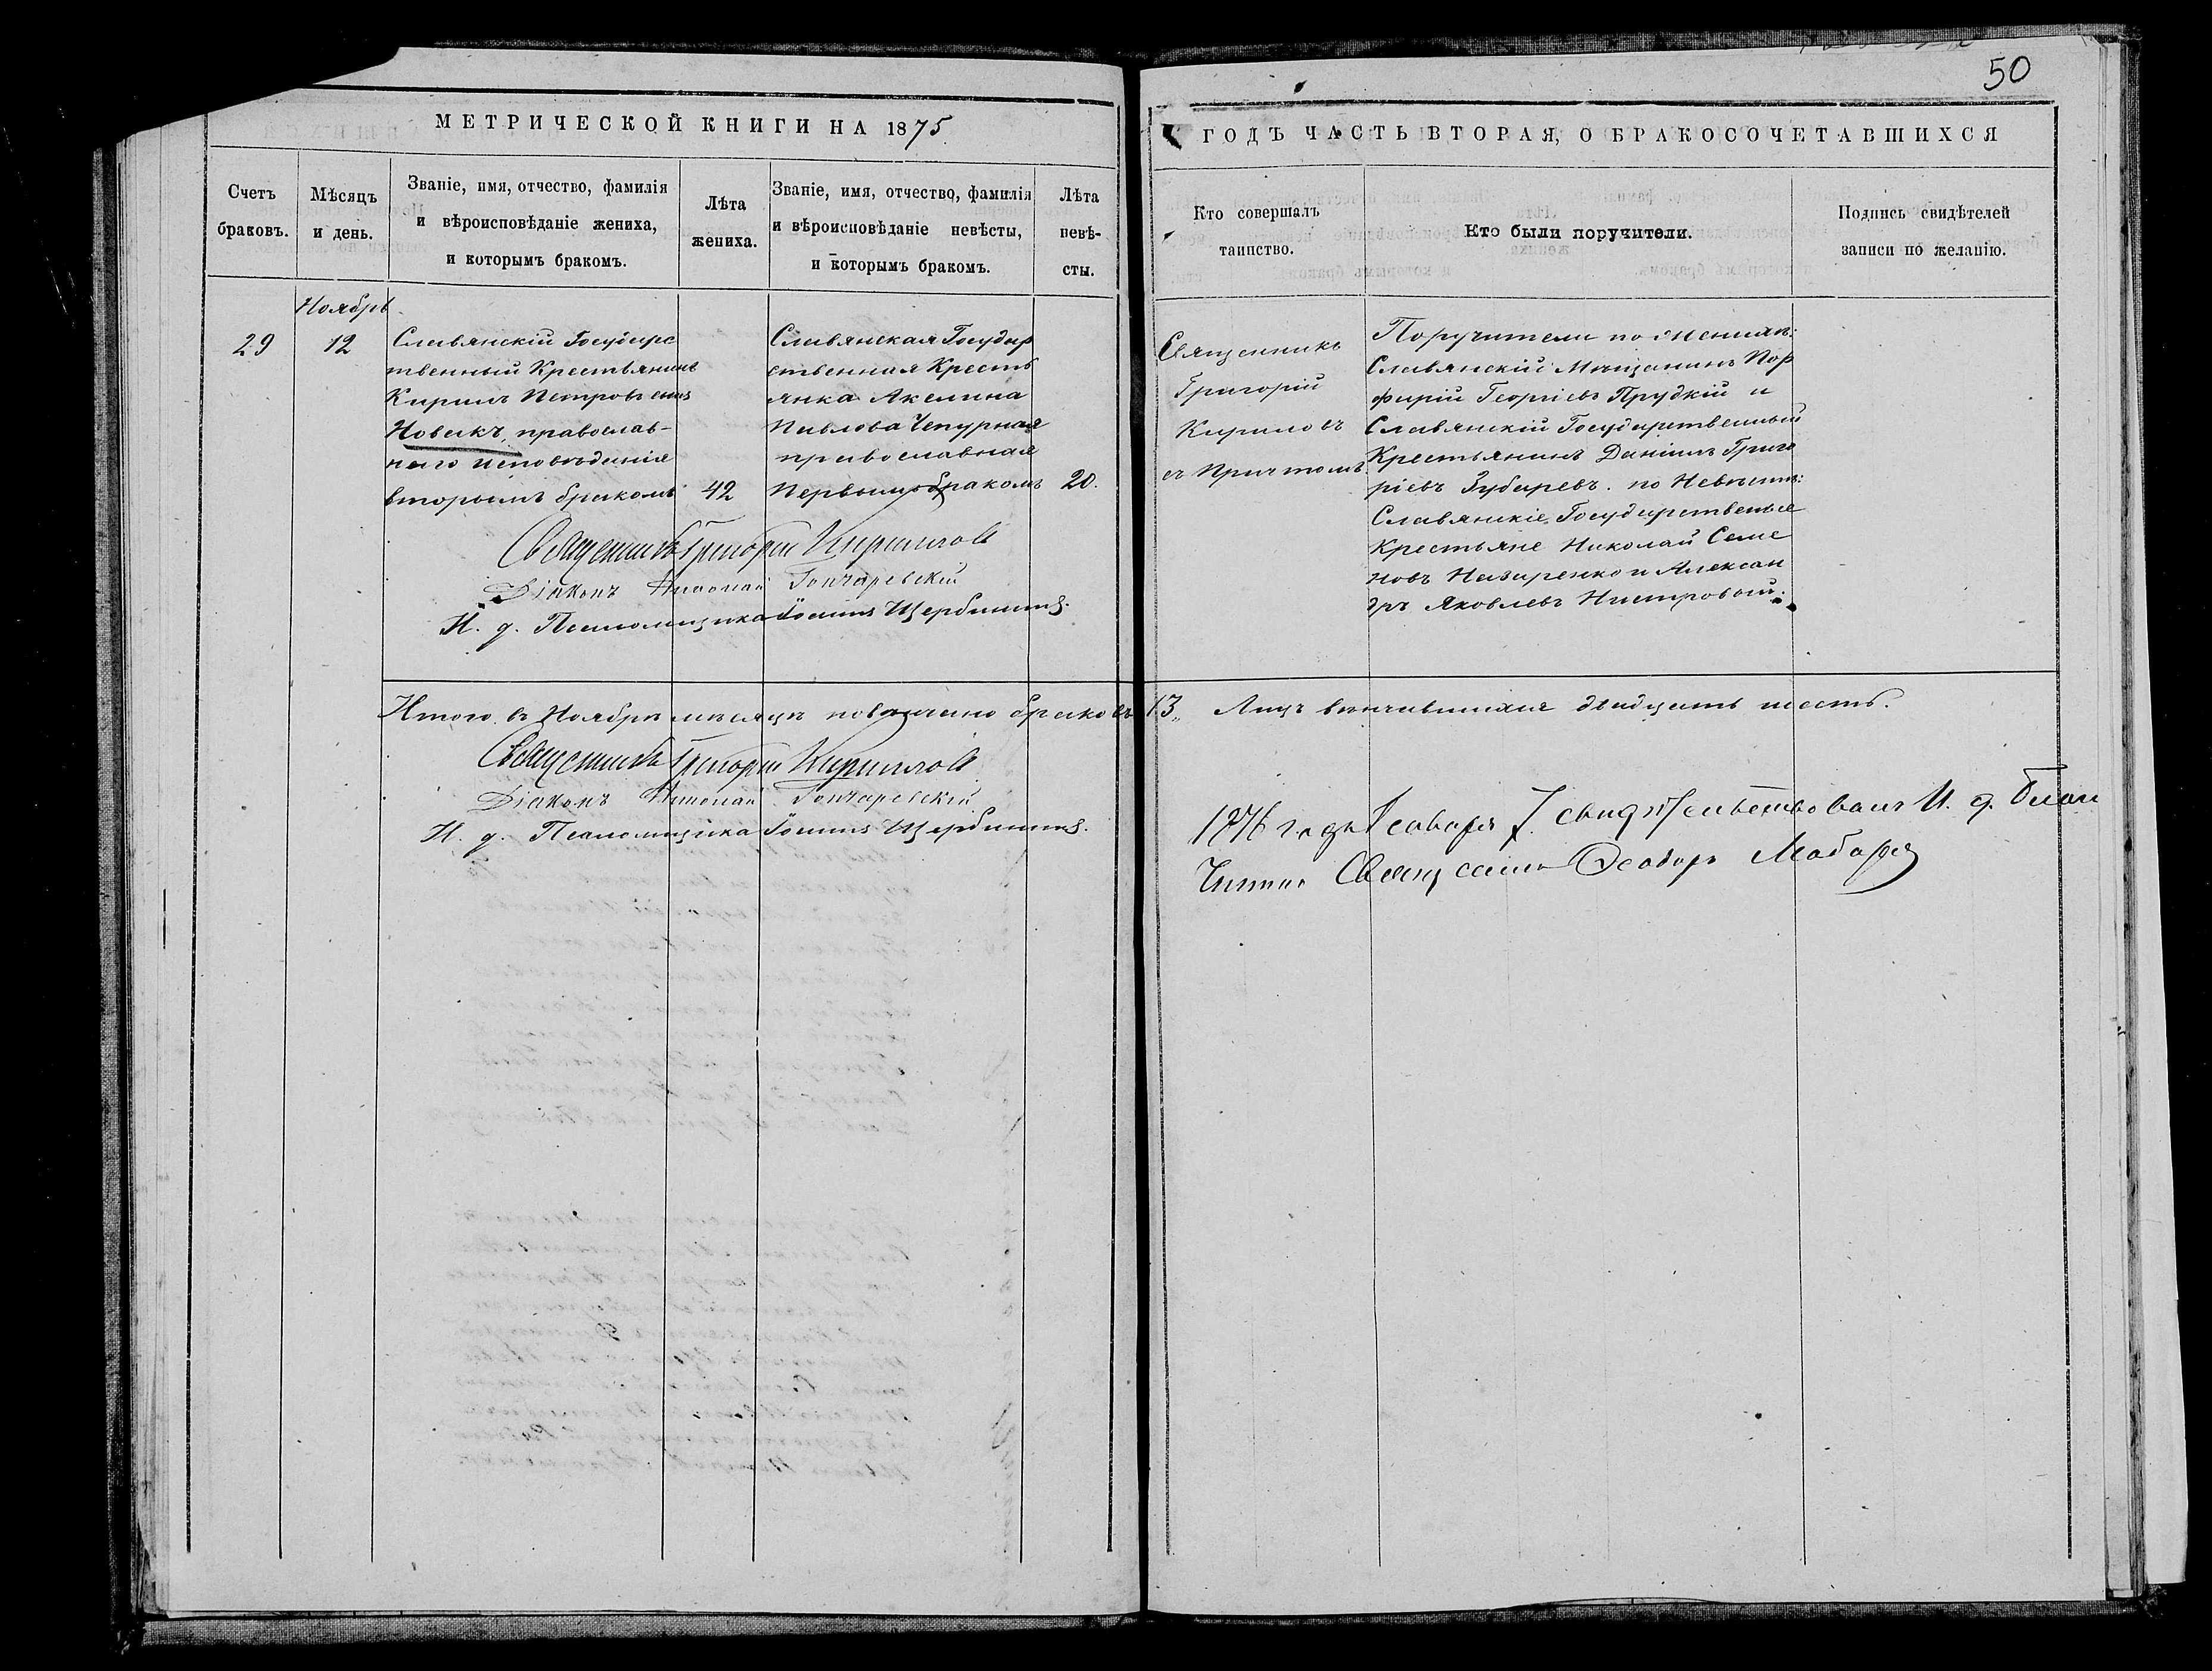 50
МЕТРИЧЕСКОЙ КНИГИ НА 1875.
ГОДЪ ЧАСТЬ ВТОРАЯ, О БРАКОСОЧЕТАВШИХСЯ
Счетъ
браковъ.
Мѣсяцъ
и день.
Званіе, имя, отчество, фамилія
и вѣроисповѣданіе жениха,
и которымъ бракомъ.
Лѣта
жениха.
Званіе, имя, отчество, фамилія
и вѣроисповѣданіе невѣсты,
и которымъ бракомъ.
Лѣта
невѣ-
сты.
Кто совершалъ
таинство.
Кто были поручители.
Подпись свидѣтелей
записи по желанію.
29
Ноябрь
12
Славянскій Государс
твенный Крестьянинъ
Кирилъ Петровъ сынъ
Новакъ, православ-
наго исповѣданія
вторымъ бракомъ
42
Славянская Государ
ственная Кресть
янка Акелина
Павлова Чепурная
православная
Первымъ бракомъ
20.
Священникъ
Григорій
Кириловъ
съ Причтомъ
Поручители по Женихѣ:
Славянскій Мѣщанинъ Пор
фирій Георгіевъ Прудкій и
Славянскій Государственный
Крестьянинъ Даніилъ Григо
ріевъ Зубаревъ. по Невѣстѣ:
Славянскіе Государственые
Крестьяне Николай Семе
новъ Назаренко и Алексан
дръ Яковлевъ Нистровой.
Священникъ Григорій Кирилловъ
Діаконъ Николай Гончаревскій
И. д. Псаломщика Іоаннъ Щербининъ.
Итого въ Ноябрѣ мѣсяцѣ повѣнчано браковъ 13,, Лицъ вѣнчавшихся двадцать шесть.
Священникъ Григорій Кирилловъ
Діаконъ Николай Гончаревскій
И. д. Псаломщика Іоаннъ Щербининъ.
1876 года Генваря 7. свидѣтельствовалъ И. д. Благо
чиннаго Священникъ Ѳеодоръ